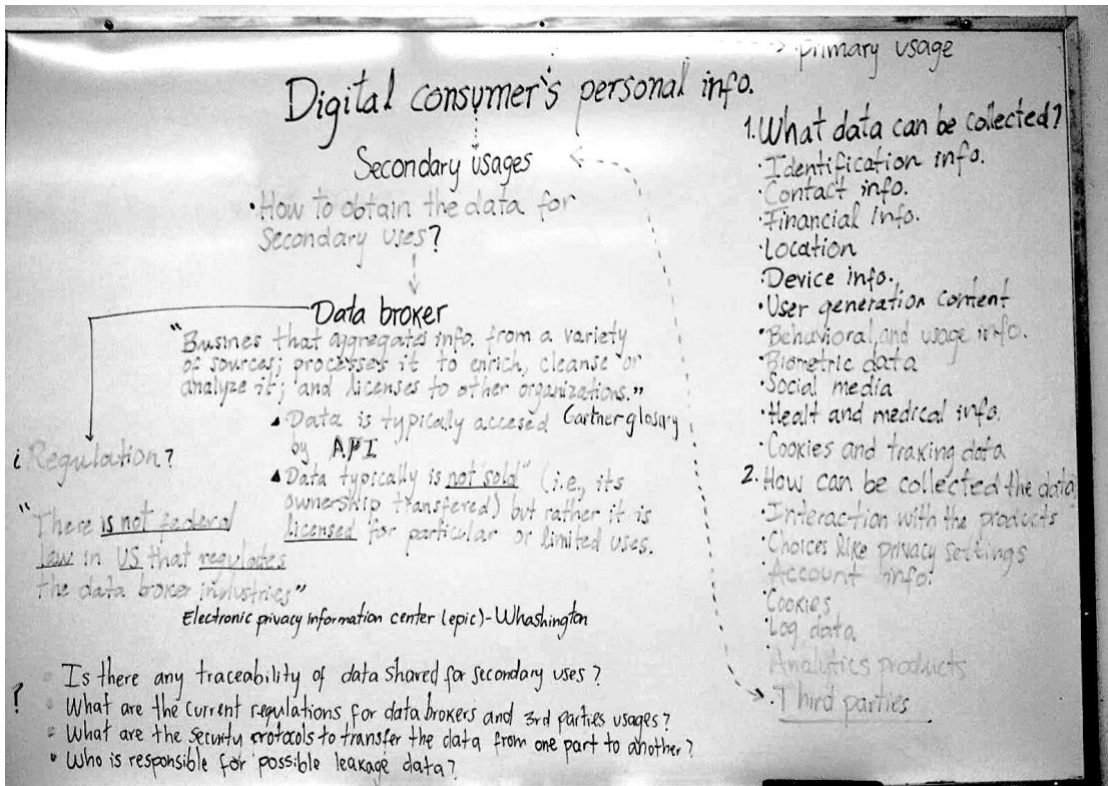 Primary usage
Digital consumer's personal info.
Secondary usages
• How to obtain the data for
secondary uses?
Data broker
"Busines that aggregates info. from a variety
of sources; processes it to enrich, cleanse or
analyze it; and licenses to other organizations."
Gartner glosary
▲ Data is typicaly accesed
by API
▲ Data typically is "not sold" (i.e., its
ownership transfered) but rather it is
licensed for particular or limited uses.
¿Regulation?
"There is not federal
law in US that regulates
the data boker industries"
Electronic privacy information center (epic)-Whashington
?
• Is there any traceability of data shared for secondary uses?
• What are the current regulations for data brokers and 3rd parties usages?
• What are the security protocols to transfer the data from one part to another?
• Who is responsible for possible leakage data?
1. What data can be collected?
• Identification info.
• Contact info.
• Financial info.
• Location
• Device info.
• User generation content
• Behavioral and usage info.
• Biometric data
• Social media
• Healt and medical info.
• Cookies and traking data
2. How can be collected the data
• Interaction with the products
• Choices like privacy settings
• Account info.
• Cookies
• Log data
• Analytics products
• Third parties